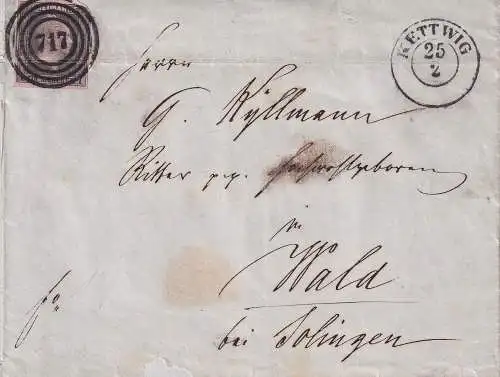 717
KETTWIG
25
2
Herrn
G. Kyllmann
Ritter pp. Hochwohlgeboren
in
Wald
bei Solingen
fr.